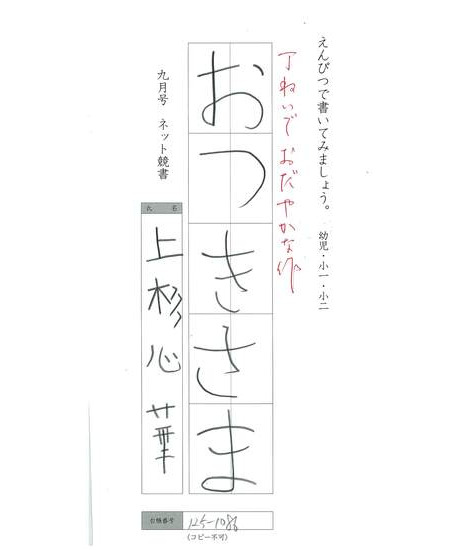 えんぴつで書いてみましょう。 幼児・小一・小二
丁ねいでおだやかな作
おつきさま
九月号 ネット競書
氏 名
上杉心華
台帳番号
125-1086
(コピー不可)